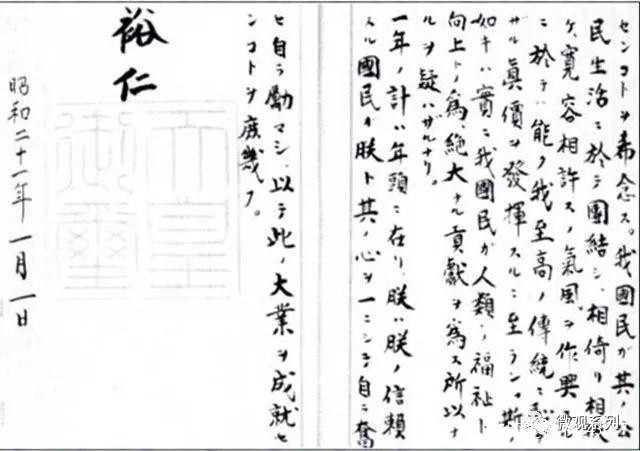 センコトヲ希念ス。我國民ガ其ノ公
民生活ニ於テ團結シ、相倚リ相扶
ケ、寛容相許スノ氣風ヲ作興スル
ニ於テハ能ク我至高ノ傳統ニ恥ヂ
ザル眞價ヲ發揮スルニ至ラン。斯ノ
如キハ實ニ我國民ガ人類ノ福祉ト
向上トノ為、絶大ナル貢獻ヲ為ス所以ナ
ルヲ疑ハザルナリ。
一年ノ計ハ年頭ニ在リ、朕ハ朕ノ信頼
スル國民ガ朕ト其ノ心ヲ一ニシテ自ラ奮
ヒ自ラ勵マシ、以テ此ノ大業ヲ成就セ
ンコトヲ庶幾フ。
裕仁
天皇御璽
昭和二十一年一月一日
微观系列